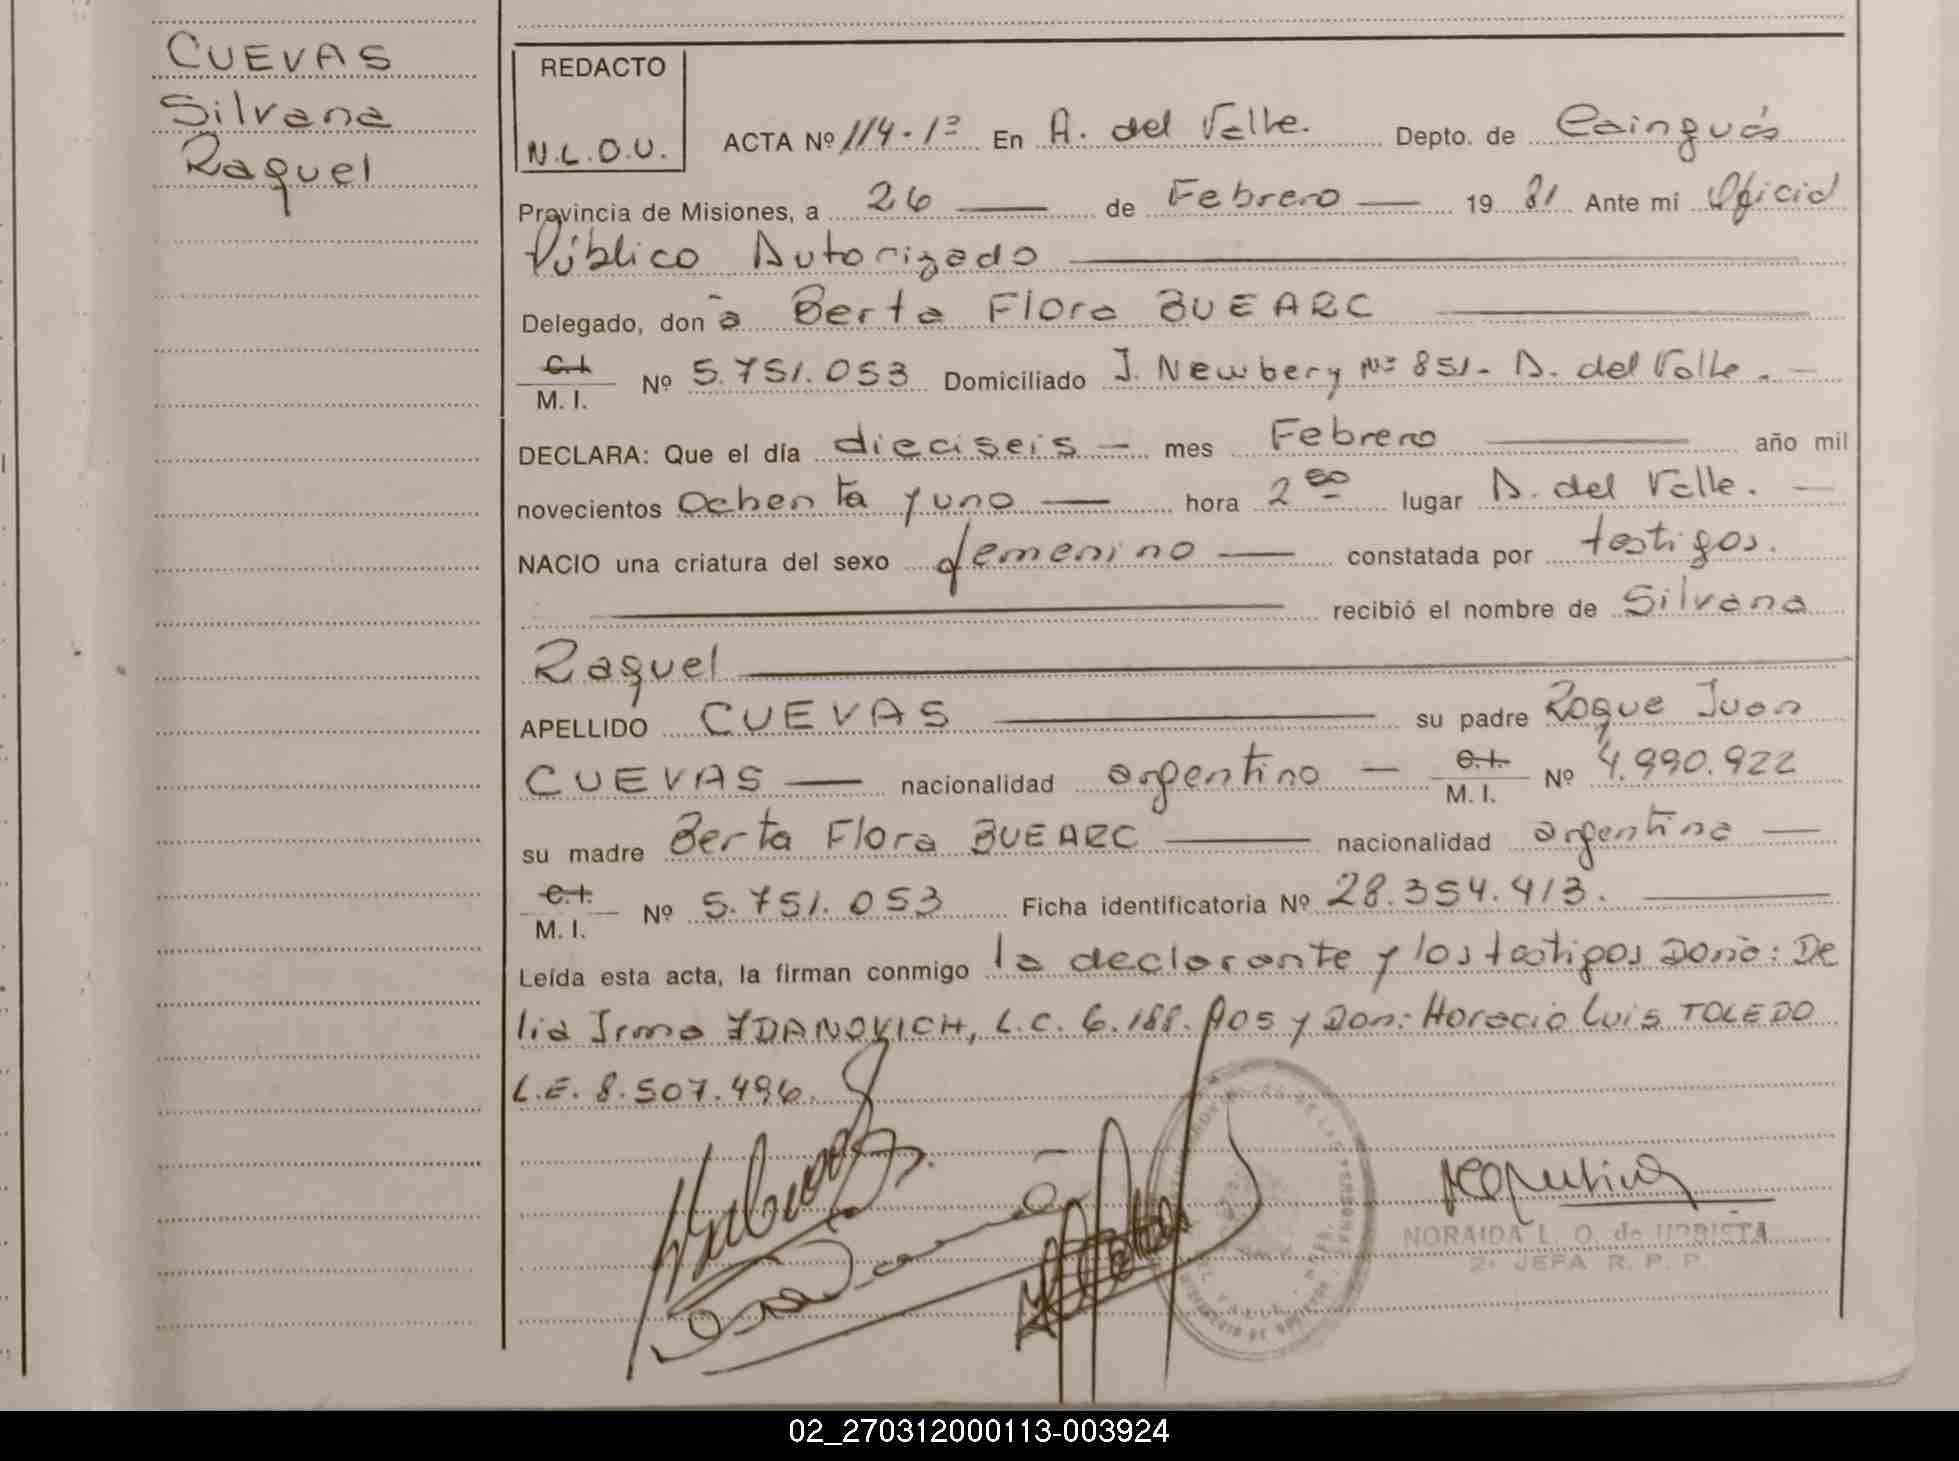 CUEVAS
Silvana
Raquel
REDACTO
N.L.O.U.
ACTA Nº 114.1º En A. del Valle. Depto. de Cainguás
Provincia de Misiones, a 26 — de Febrero — 19 81 Ante mi Oficial
Público Autorizado
Delegado, doña Berta Flora BUEARC
C.I. M. I. Nº 5.751.053 Domiciliado J. Newbery Nº 851- A. del Valle. -
DECLARA: Que el día dieciseis — mes Febrero — año mil
novecientos ochenta y uno — hora 2 00 lugar A. del Valle. —
NACIO una criatura del sexo femenino — constatada por testigos.
recibió el nombre de Silvana
Raquel
APELLIDO CUEVAS — su padre Roque Juan
CUEVAS — nacionalidad argentino — C.I. M. I. Nº 4.990.922
su madre Berta Flora BUEARC — nacionalidad argentina —
C.I. M. I. Nº 5.751.053 Ficha identificatoria Nº 28.354.413.
Leída esta acta, la firman conmigo la declarante y los testigos Doña: De
lia Irma IDANOVICH, L.C. 6.188.A05 y Don: Horacio Luis TOLEDO
L.E. 8.507.496.
NORAIDA L. O. de URRISTA
2ª JEFA R. P. P.
02_270312000113-003924